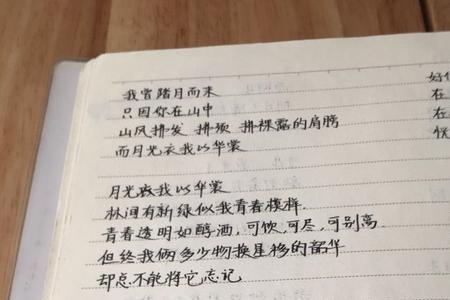 我曾踏月而来
只因你在山中
山风拂发 拂颈 拂裸露的肩膀
而月光衣我以华裳
月光衣我以华裳
林间有新绿似我青春模样
青春透明如醇酒，可饮，可尽，可别离
但终我俩多少物换星移的韶华
却总不能将它忘记
好
在
在